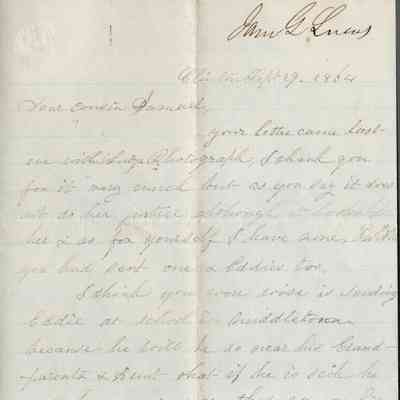 Sam G Lucas
Clinton Sept 29. 1864
Dear cousin Samuel,
your letter came last
eve with Photograph, I thank you
for it very much but as you say it does
not do her justice although it looks like
her & as for yourself I have one,
you had sent one of Eddies too.
I think you were wise in sending
Eddie at school in Middletown
because he will be so near his Grand-
parents & Aunt that if he is sick he